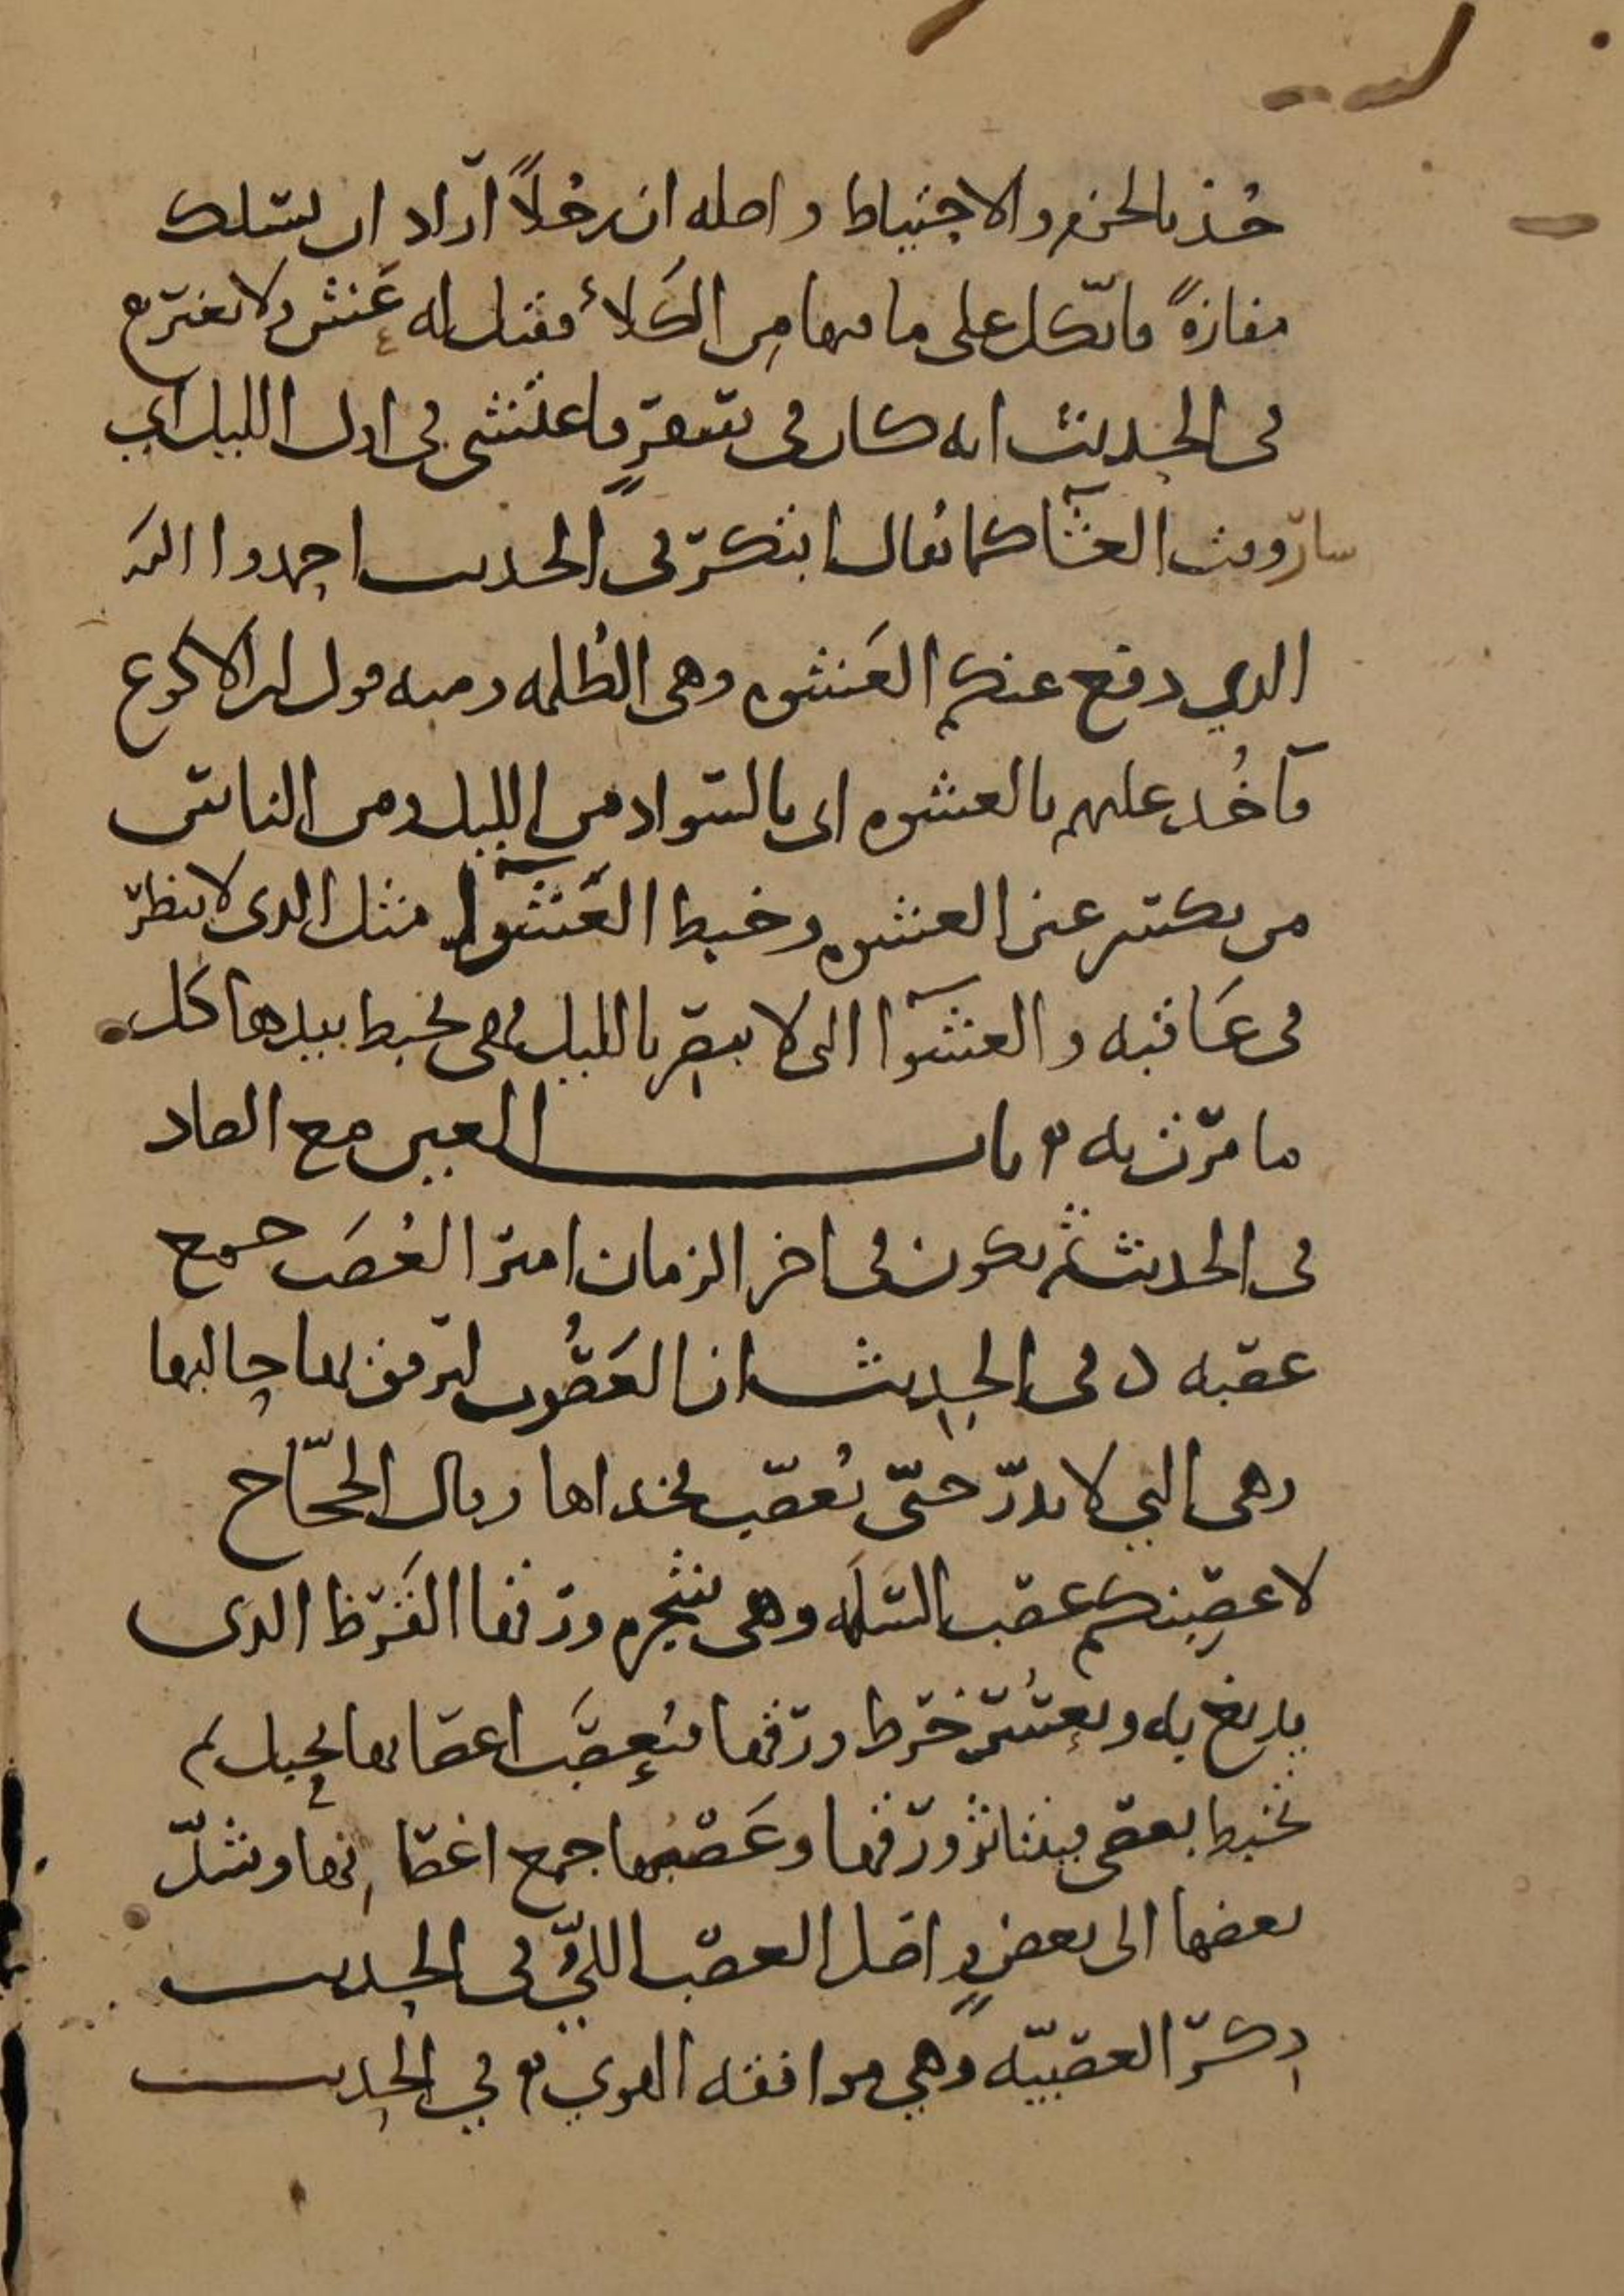 خُذ بالحزم والاحتياط واصله ان رجُلاً اراد ان يسلك
مفازةً واتّكل على ما فيها مِن الكَلأ فقيل له عَشِّ ولا تغترّ
في الحديث انه كان في سفرٍ فاعتشى في اول الليل اي
سار وقت العشا كما يُقال ابتكر في الحديث احمدوا الله
الذي رفع عنكم العَشوه وهي الظُلمه ومنه قول ابن الاكوع
فآخُذ عليهم بالعشوه اي بالسواد من الليل ومن الناس
من يكسر عين العشوه وخبط العَشوا مثل الذي لا ينظر
في عَاقبه والعشوا التي لا تبصر بالليل فهي تخبط بيدها كل
ما مرّت به باب العين مع الصاد
في الحديث ثم يكون في اخر الزمان امير العُصَب جمع
عصبه وفي الحديث ان العَصُوب ليرفق بها حالبها
وهي التي لا تدرّ حتّى تُعصّب فخداها وقال الحجّاج
لاعصِبنكم عصب السَلَمه وهي شجره ورقها القَرَظ الذي
يدبغ به ويعسُر خَرط ورقها فتُعصَب اغصانها بحبل ثم
تخبط بعصى فيتناثر ورقها وعَصْبها جمع اغصانها وشدّ
بعضها الى بعضٍ واصل العصب اللَيّ في الحديث
ذكر العصبيّه وهي موافقه القوي في الحديث